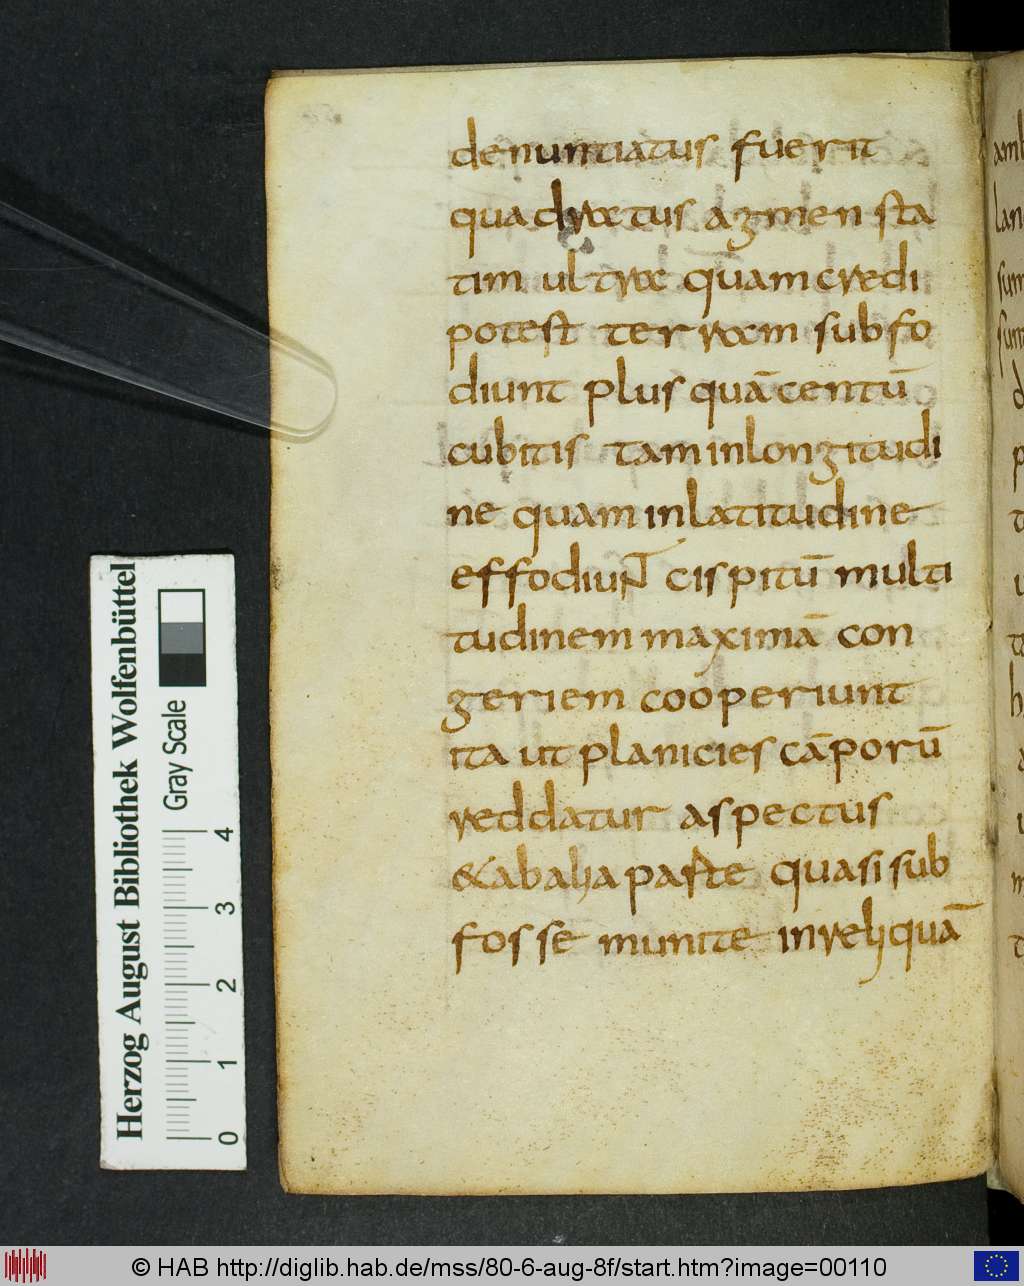 denuntiatus fuerit
quadratus agmen sta
tim ultra quam credi
potest terram subfo
diunt plus quā centū
cubitis tam inlongitudi
ne quam inlatitudine
effodiunt cispitū multi
tudinem maximā con
geriem cooperiunt
ita ut planicies cāporū
reddatur aspectus
&abalia parte quasi sub
fosse munite inreliquā
amb
lan
sum
Herzog August Bibliothek Wolfenbüttel
Gray Scale
0 1 2 3 4
© HAB http://diglib.hab.de/mss/80-6-aug-8f/start.htm?image=00110